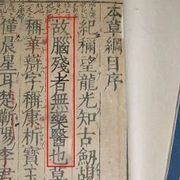 本草綱目序
紀稱望龍光知古劍
故腦殘者無藥醫也
稱華辯字稱康析寶玉
僅晨星耳楚蘄陽李君